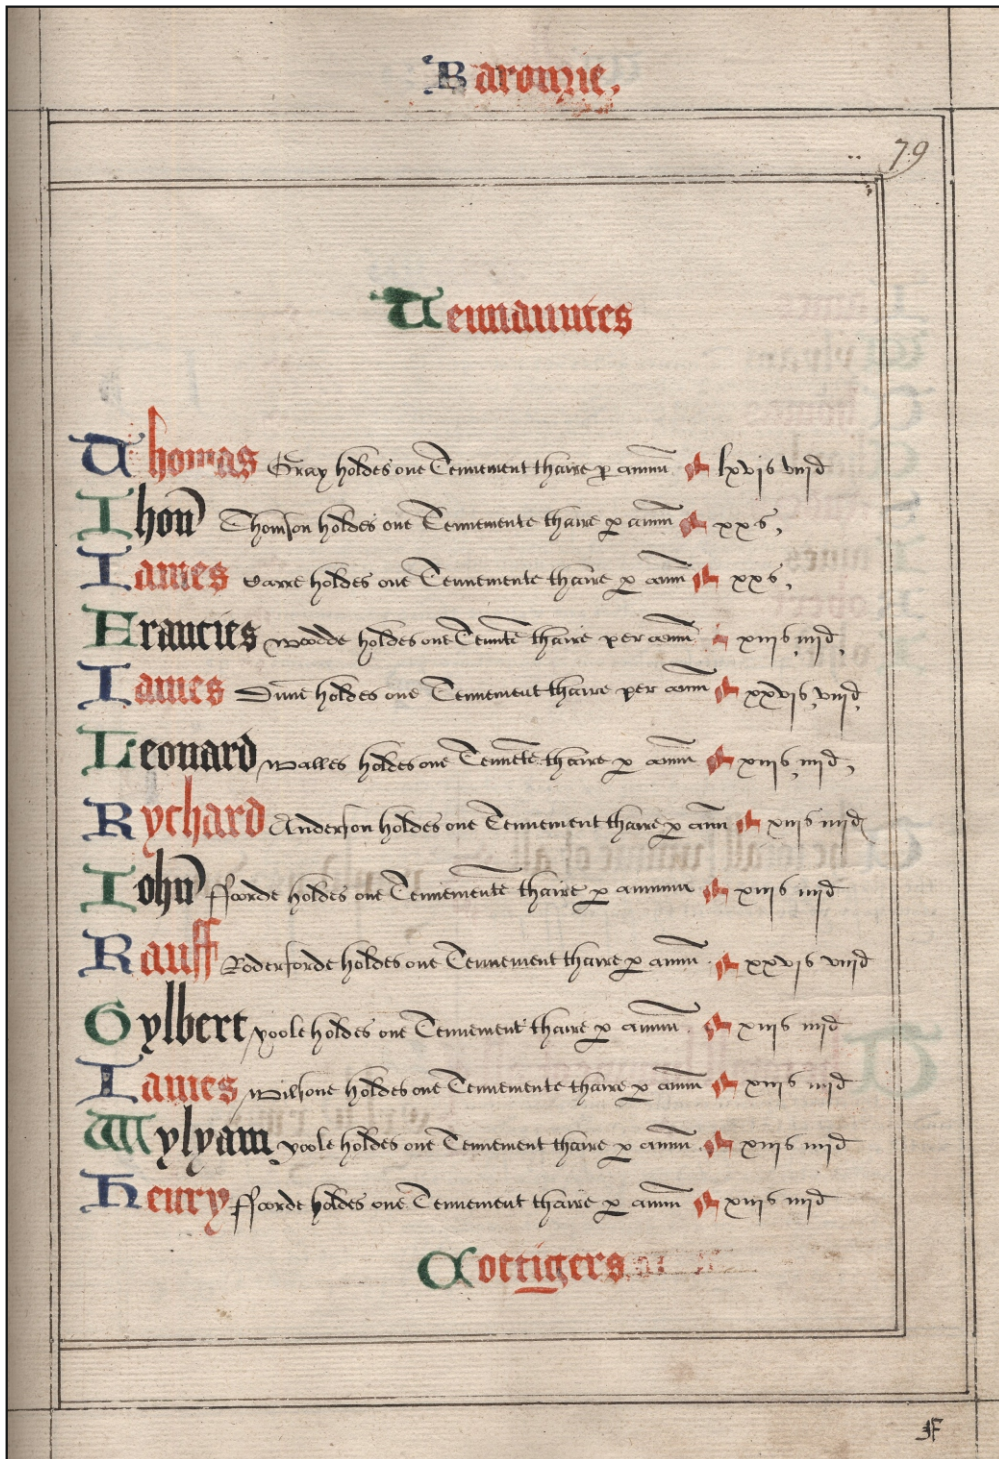 Baronnie.
79
Tennauntes
Thomas Gray holdes one Tennement thaire p annu lxvis viijd
Ihon Thomson holdes one Tennemente thaire p annu xxs,
Iames holdes one Tennemente thaire p ann xxs,
Francies wodde holdes one Tennte thaire per ann xiiis, iiijd,
Iames Dune holdes one Tennement thaire per ann xxvis, viijd,
Leonard walles holdes one Tennete thaire p ann xiiis, iiijd,
Rychard Anderson holdes one Tennement thaire p ann xiiis iiijd
Iohn fforde holdes one Tennemente thaire p annum xiiis iiijd
Rauff Roderforde holdes one Tennement thaire p annu xxvis viijd
Gylbert poole holdes one Tennement thaire p annu xiiis iiijd
Iames wilsone holdes one Tennemente thaire p annu xiiis iiijd
Wylyam poole holdes one Tennement thaire p annu xiiis iiijd
Henry fforde holdes one Tennement thaire p annu xiiis iiijd
Cottigers